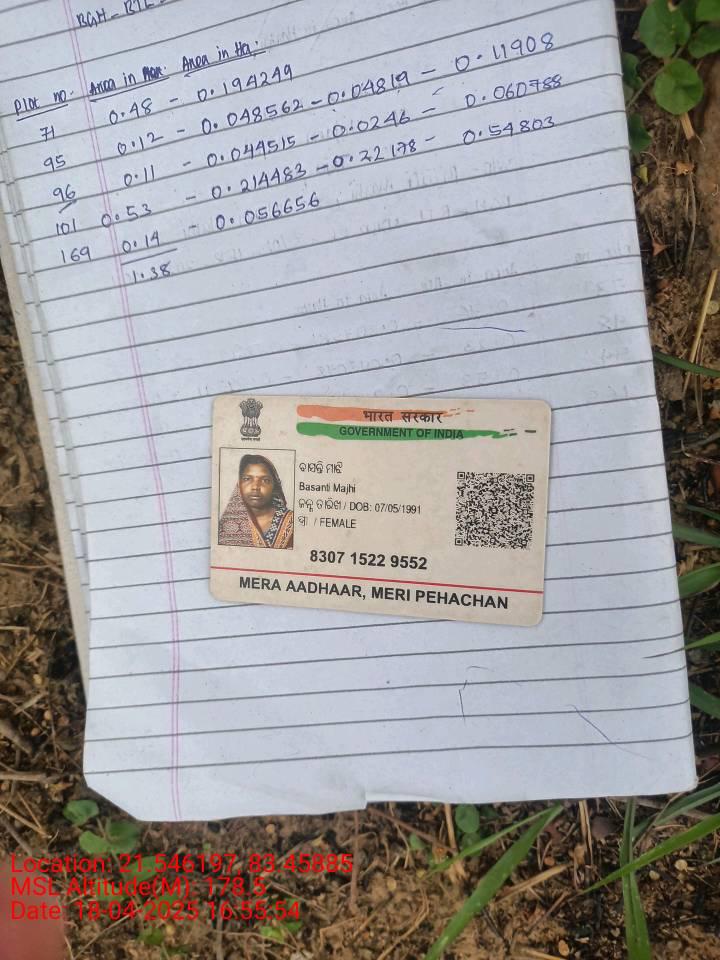 BGH - BTL -
Plot no. Area in Man. Area in Ha.
71 0.48 - 0.194249
95 0.12 - 0.048562 - 0.04819 - 0.11908
96 0.11 - 0.044515 - 0.0246 - 0.060788
101 0.53 - 0.214483 - 0.22178 - 0.54803
169 0.14 - 0.056656
1.38
भारत सरकार
GOVERNMENT OF INDIA
ବାସନ୍ତି ମାଝି
Basanti Majhi
ଜନ୍ମ ତାରିଖ / DOB: 07/05/1991
ସ୍ତ୍ରୀ / FEMALE
8307 1522 9552
MERA AADHAAR, MERI PEHACHAN
Location: 21.546197, 83.45885
MSL Altitude(M): 178.5
Date: 18-04-2025 16:55:54